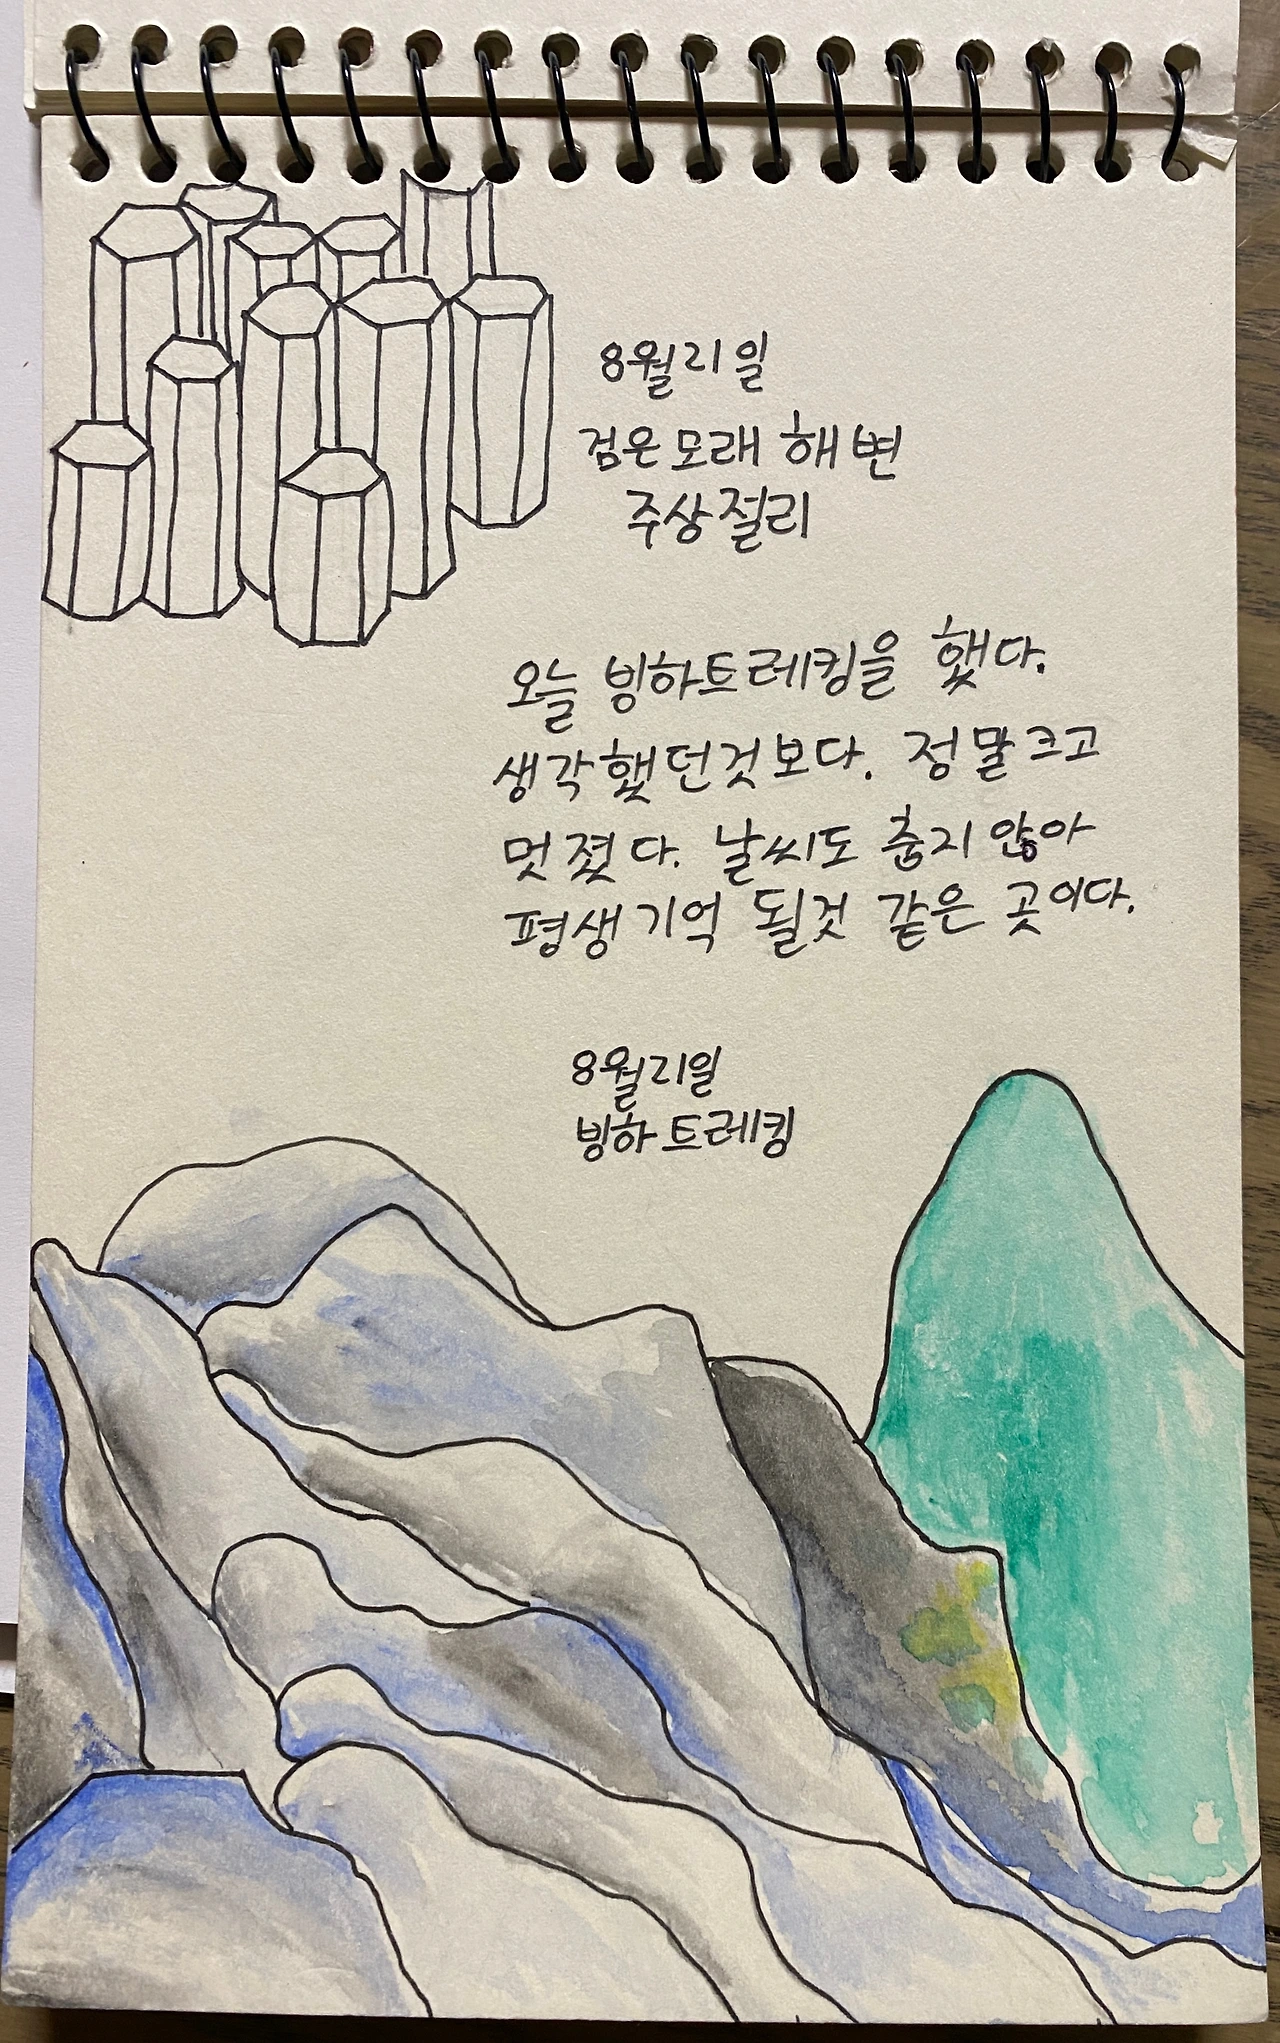 8월21일
검은 모래 해변
주상절리
오늘 빙하트레킹을 했다.
생각했던것보다. 정말크고
멋졌다. 날씨도 춥지 않아
평생 기억 될것 같은 곳이다.
8월21일
빙하 트레킹